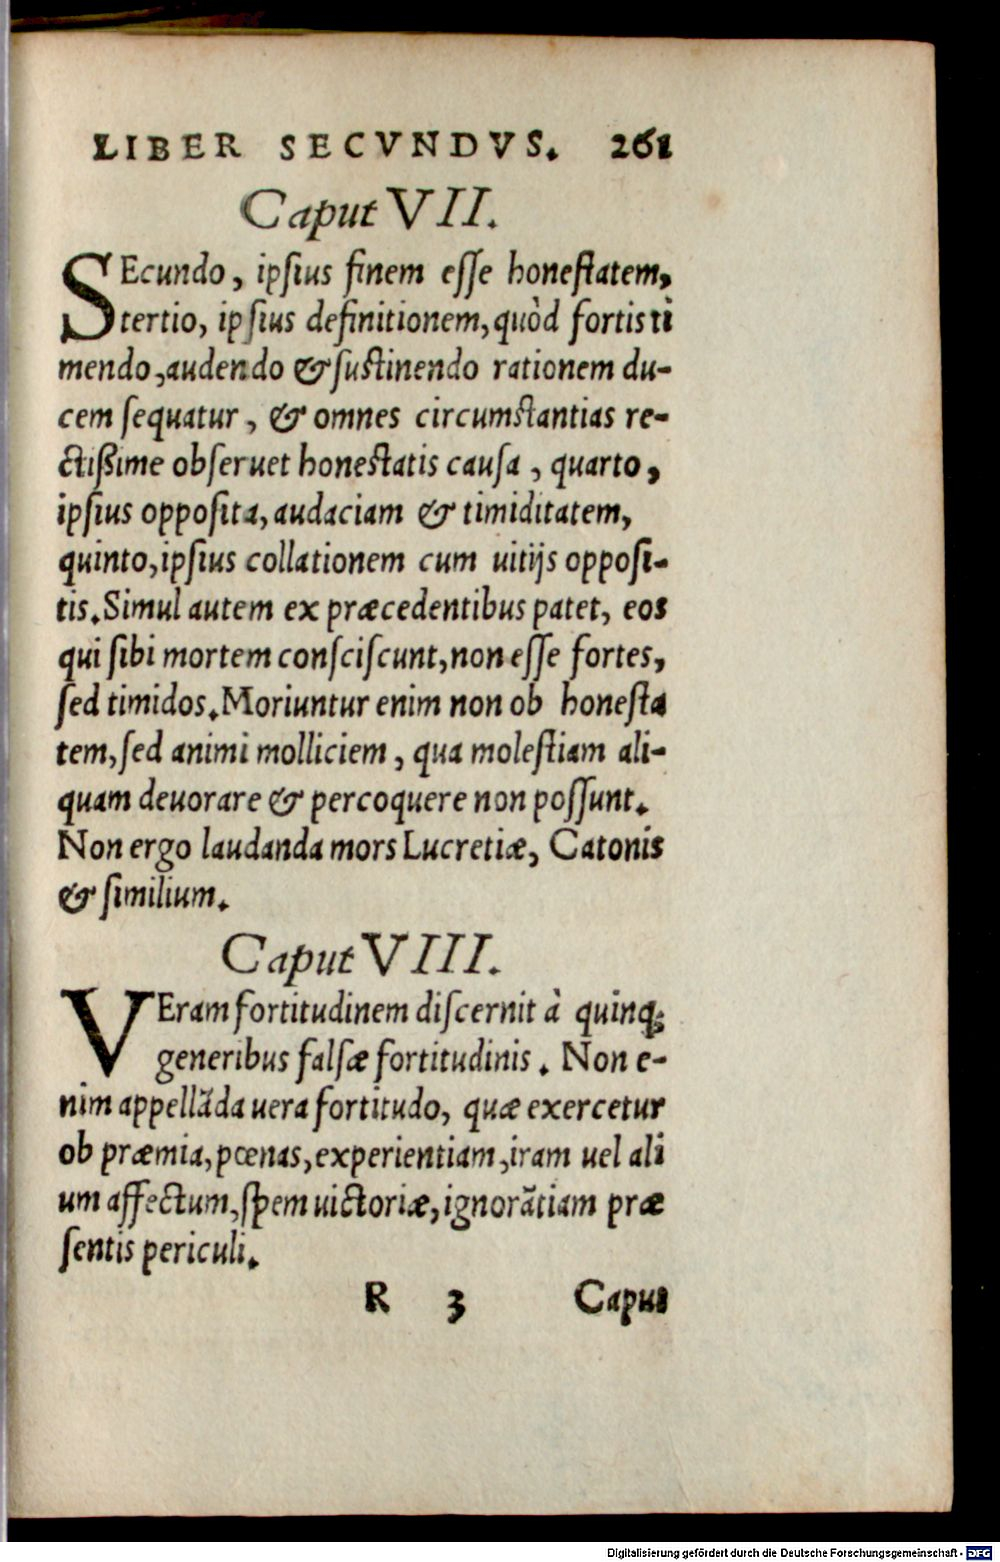 LIBER SECVNDVS. 261
Caput VII.
SEcundo, ipſius finem eſſe honeſtatem,
tertio, ipſius definitionem, quòd fortis ti
mendo, audendo & ſuſtinendo rationem du-
cem ſequatur, & omnes circumſtantias re-
ctißime obſeruet honeſtatis cauſa, quarto,
ipſius oppoſita, audaciam & timiditatem,
quinto, ipſius collationem cum uitijs oppoſi-
tis. Simul autem ex præcedentibus patet, eos
qui ſibi mortem conſciſcunt, non eſſe fortes,
ſed timidos. Moriuntur enim non ob honeſta
tem, ſed animi molliciem, qua moleſtiam ali-
quam deuorare & percoquere non poſſunt.
Non ergo laudanda mors Lucretiæ, Catonis
& ſimilium.
Caput VIII.
VEram fortitudinem diſcernit à quinq;
generibus falſæ fortitudinis. Non e-
nim appellãda uera fortitudo, quæ exercetur
ob præmia, pœnas, experientiam, iram uel ali
um affectum, ſpem uictoriæ, ignorãtiam præ
ſentis periculi.
R 3 Caput
Digitalisierung gefördert durch die Deutsche Forschungsgemeinschaft - DFG